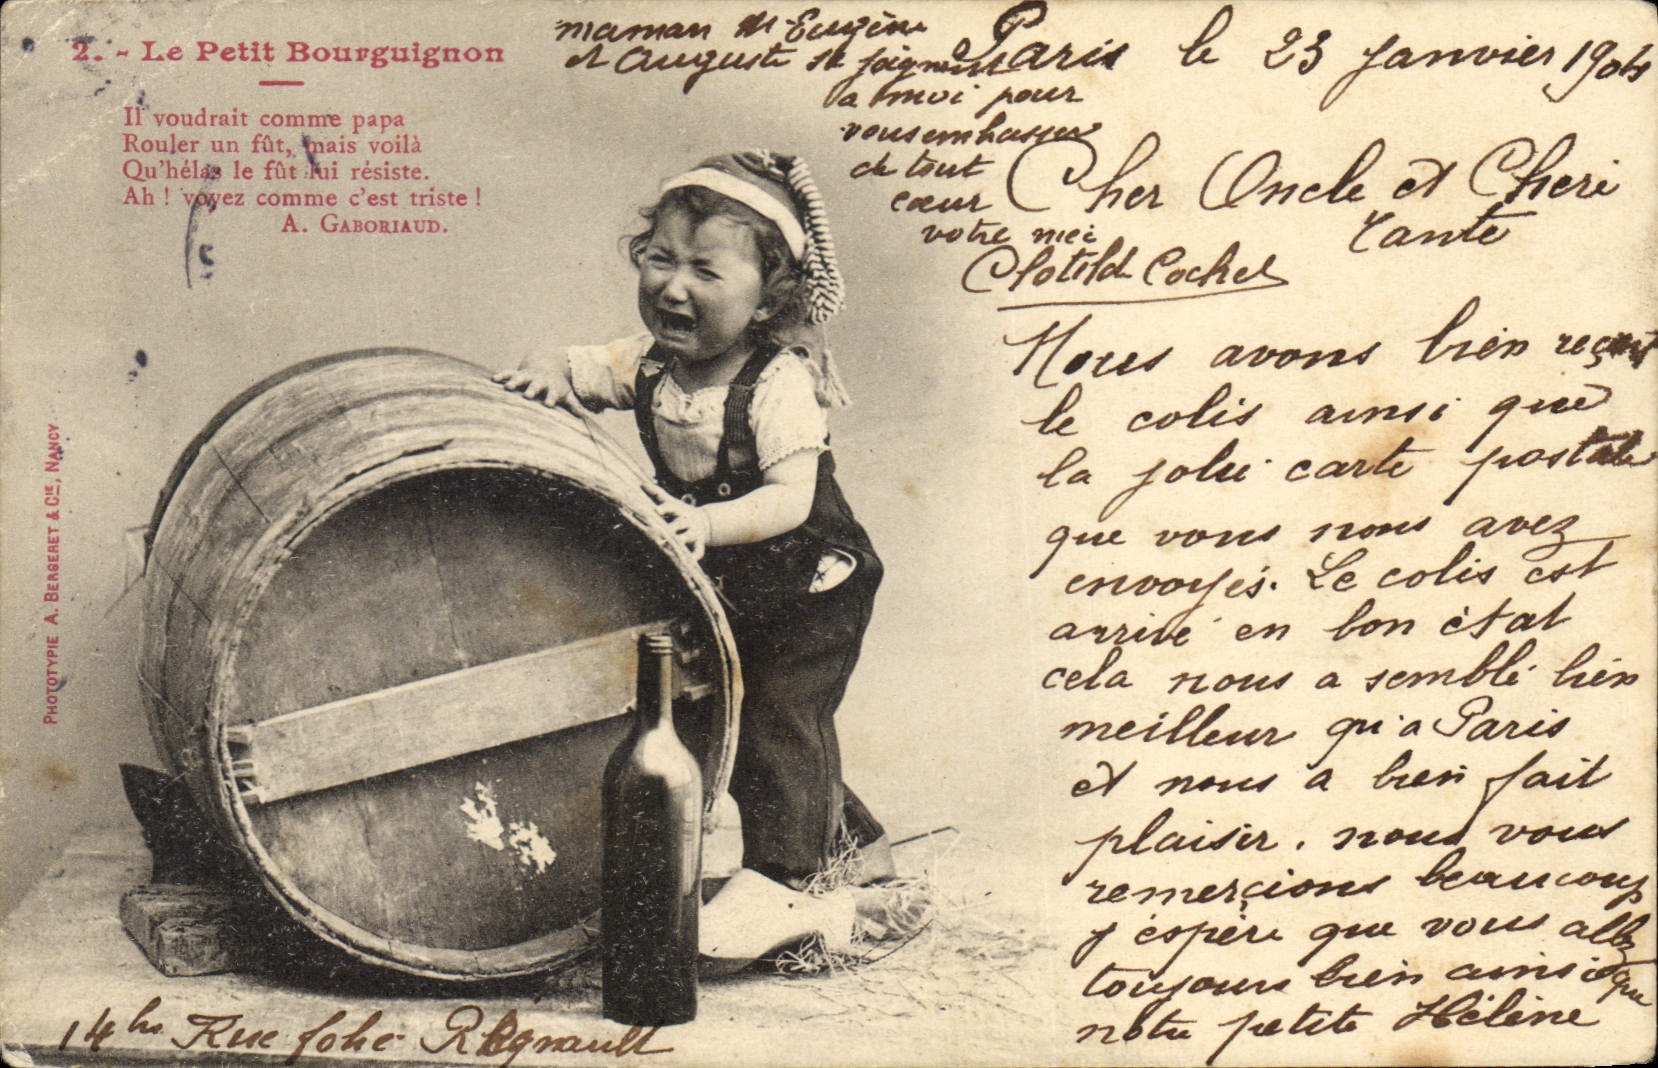 2. - Le Petit Bourguignon
Il voudrait comme papa
Rouler un fût, mais voilà
Qu'hélas le fût lui résiste.
Ah ! voyez comme c'est triste !
A. GABORIAUD.
PHOTOTYPIE A. BERGERET & Cie, NANCY
Paris le 23 janvier 1904
Cher Oncle et Cheri
Tante
Nous avons bien reçut
le colis ainsi que
la jolie carte postale
que vous nous avez
envoyés. Le colis est
arrivé en bon état
cela nous a semblé bien
meilleur qu'a Paris
et nous a bien fait
plaisir. nous vous
remerçions beaucoup
j'espère que vous allez
toujours bien ainsi que
notre petite Hélène
maman Eugène
et Auguste se joignent
a moi pour
vous embrasser
de tout
cœur
votre niéi
Clotild Cochet
14 bis Rue folie Régnault